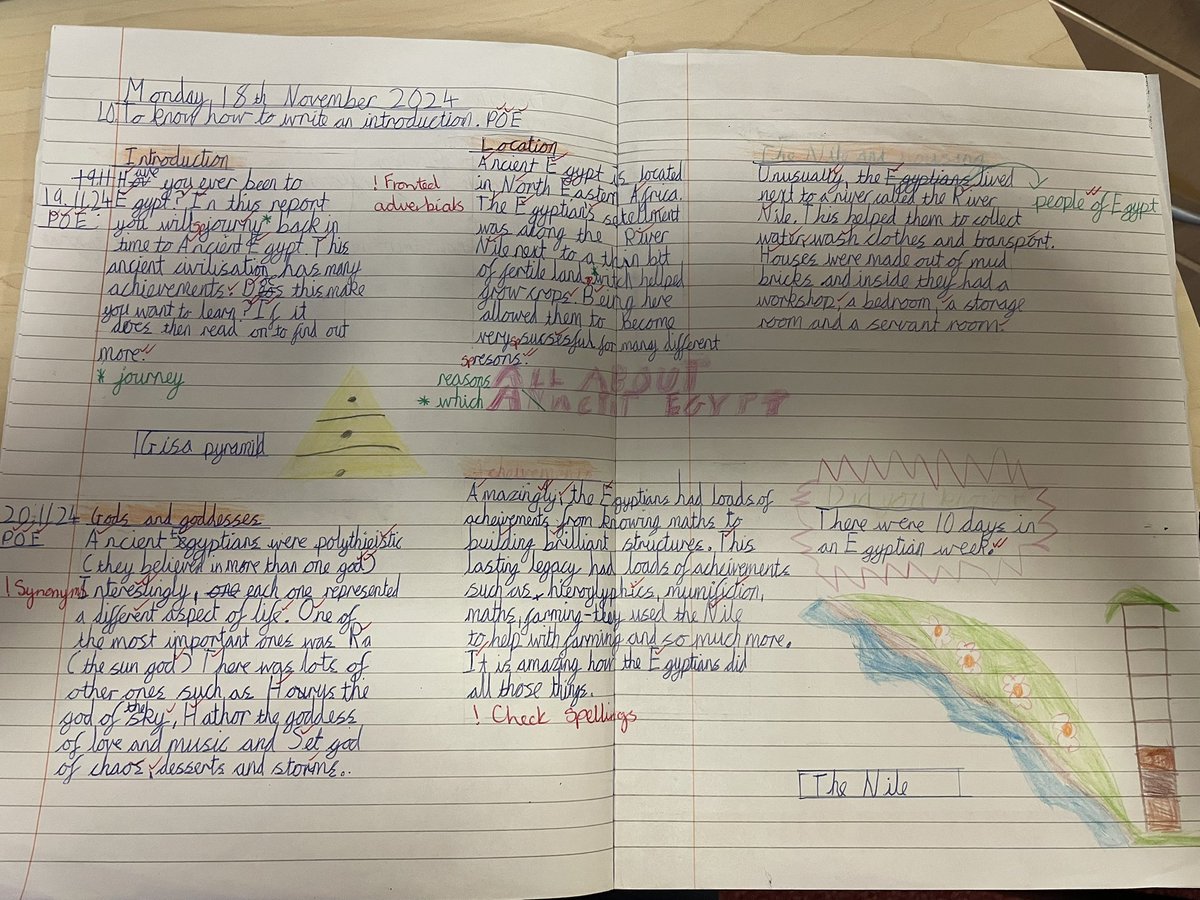 Monday 18th November 2024
LO To know how to write an introduction. POE
Introduction
19.11 Have you ever been to
19.11.24 Egypt? In this report
POE you will journy* back in
time to Ancient Egypt. This
ancient civilisation has many
achievements. Does this make
you want to learn? If it
does then read on to find out
more.
* journey
Gisa pyramid
! Fronted
adverbials
Location
Ancient Egypt is located
in North Eastern Africa.
The Egyptian's satellment
was along the River
Nile next to a thin bit
of fertile land, *witch helped
grow crops. Being here
allowed them to become
very sp sucsesful for many different
sp resons.
reasons
* which
ALL ABOUT
ANNCIENT EGYPT
The Nile and housing
Unusually, the Egyptians lived
next to a river called the River
Nile. This helped them to collect
water, wash clothes and transport.
Houses were made out of mud
bricks and inside they had a
workshop, a bedroom, a storage
room and a servant room
people of Egypt
20.11.24 Gods and goddesses
POE Ancient Egyptians were polythieistic
(they believed in more than one god)
! Synonyms Interestingly, one each one represented
a different aspect of life. One of
the most important ones was Ra
(the sun god) There was lots of
other ones such as Hourys the
god of the sky, Hathor the goddess
of love and music and Set god
of chaos, desserts and storms.
Achievements
Amazingly, the Egyptians had loads of
acheivements from knowing maths to
building brilliant structures. This
lasting legacy had loads of acheivements
such as hieroglyphics, mumifiction,
maths, farming-they used the Nile
to help with farming and so much more.
It is amazing how the Egyptians did
all those things.
! Check Spellings
Did you know
There were 10 days in
an Egyptian week.
The Nile